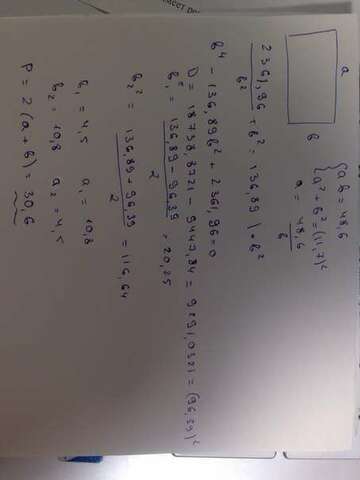 a
в
ab = 48,6
a² + b² = (11,7)²
a = 48,6 / b
2361,96 / b² + b² = 136,89 | · b²
b⁴ - 136,89b² + 2361,96 = 0
D = 18738,8721 - 9447,84 = 9291,0321 = (96,39)²
b₁² = 136,89 - 96,39 / 2 = 20,25
b₂² = 136,89 + 96,39 / 2 = 116,64
b₁ = 4,5 a₁ = 10,8
b₂ = 10,8 a₂ = 4,5
P = 2 (a + b) = 30,6